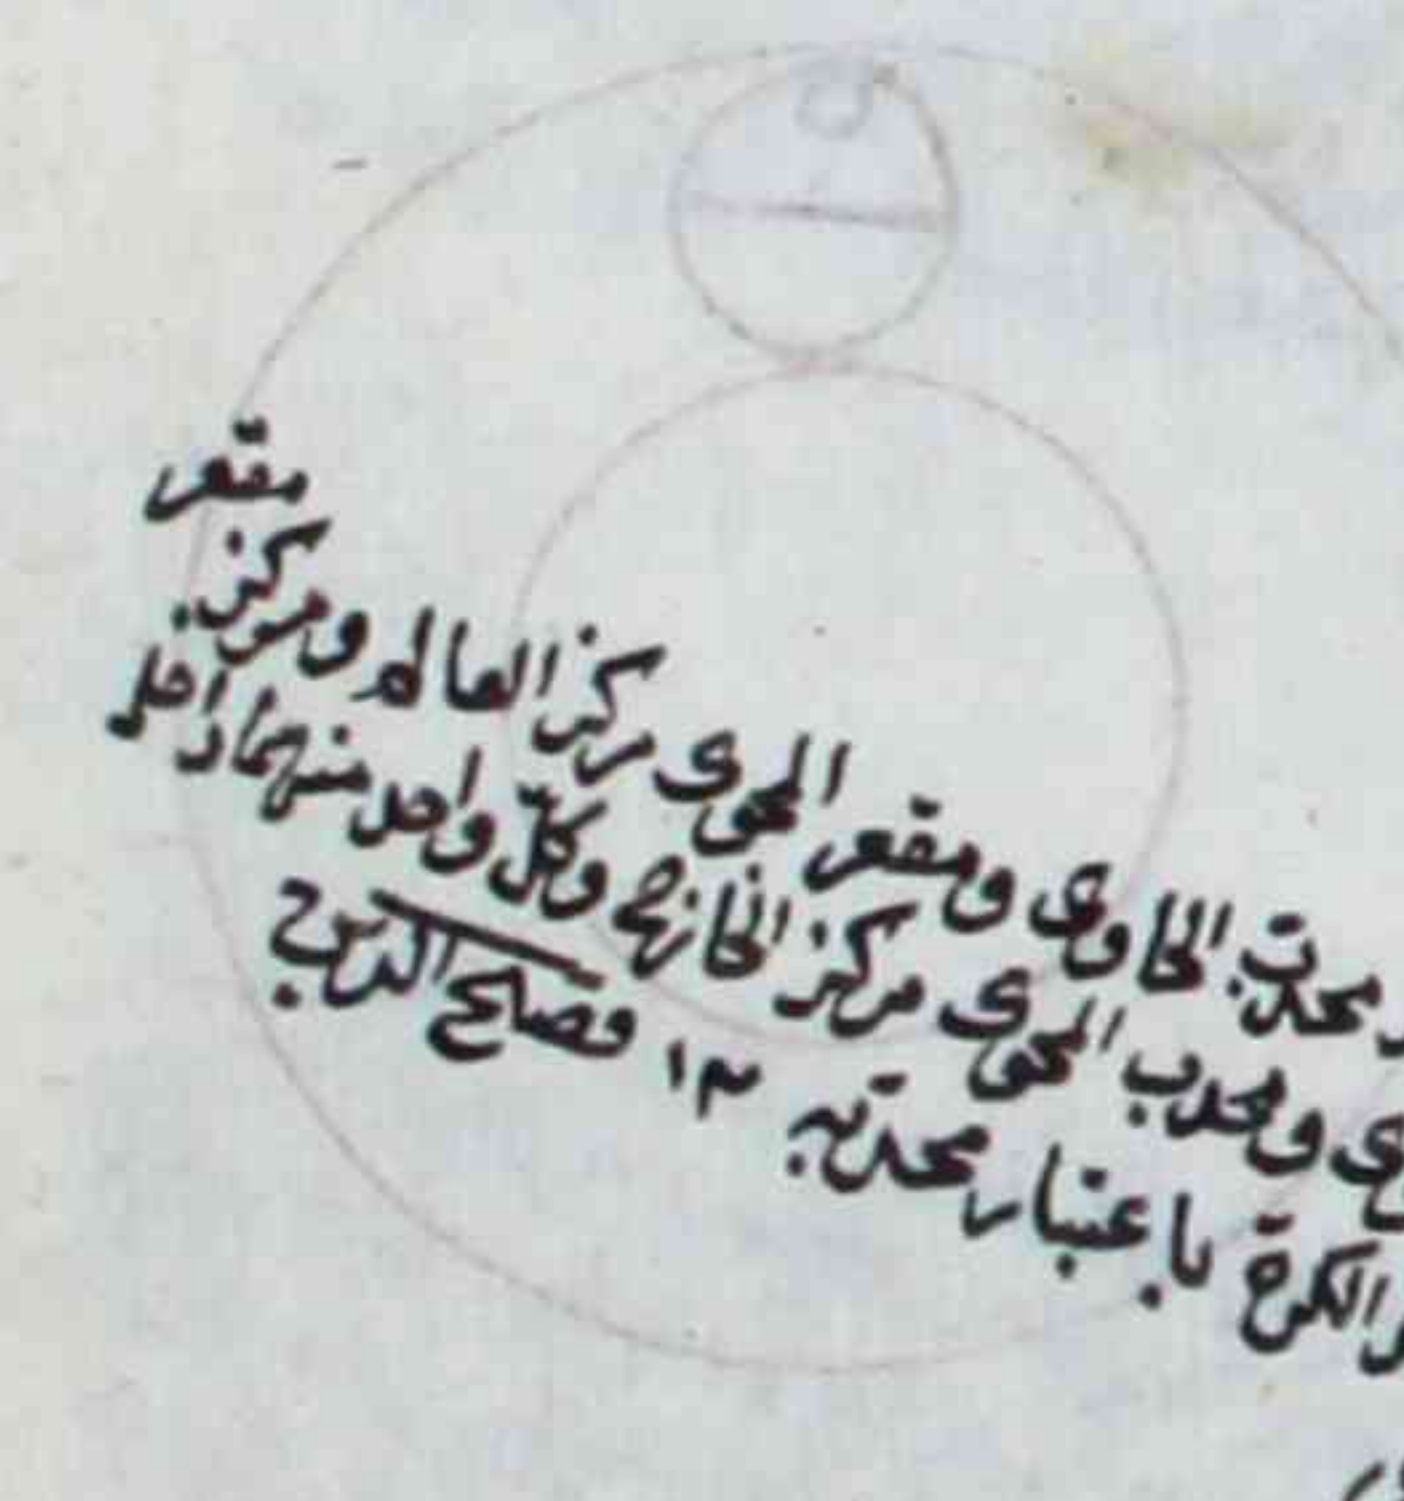 محدّب الحاوى ومقعر المحوى مركز العالم ومركز مقعر
ومحدب المحوى مركز الخارج وكلّ واحد منهما داخل
الكرة باعتبار محدبه ١٢ مصلح الدين